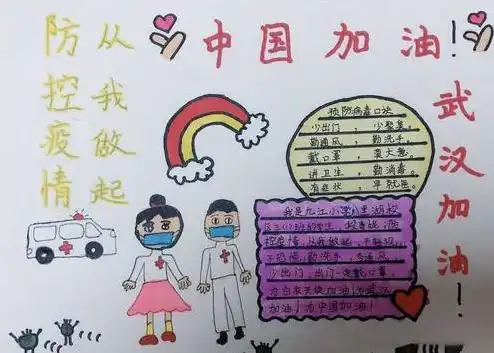 中国加油！
防控疫情
从我做起
武汉加油！
预防病毒口决
少出门，少聚集。
勤通风，勤洗手。
戴口罩，
讲卫生，勤消毒。
有症状，早就医。
我是九江小学八里湖校
区三(1)班的学生
控疫情，从我做起，
不恐慌，勤洗手，
少出门，出门一定戴口罩
为白衣天使加油，为武汉
加油！为中国加油！